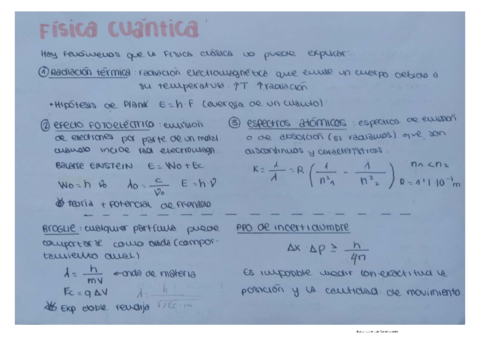 Física Cuántica
Hay fenómenos que la Física clásica no puede explicar
① Radiación térmica: radiación electromagnética que emite un cuerpo debido a
su temperatura ↑T ↑radiación
• Hipótesis de Plank E = h f (energía de un cuanto)
② Efecto fotoeléctrico: emisión
de electrones por parte de un metal
cuando incide rad electromagn.
Balance EINSTEIN E = Wo + Ec
Wo = h ν₀ λo = c/ν₀ E = h ν
Teoría + potencial de frenado
③ Espectros atómicos: espectros de emisión
o de absorción (si radiamos) que son
discontinuos y característicos.
K = 1/λ = R (1/n²₁ - 1/n²₂) n₁ < n₂
Broglie: cualquier partícula puede
comportarse como onda (compor-
tamiento dual)
λ = h/mv ← onda de materia
Ec = q ΔV
Exp doble rendija
PPO de incertidumbre
Δx Δp ≥ h/4π
Es imposible medir con exactitud la
posición y la cantidad de movimiento